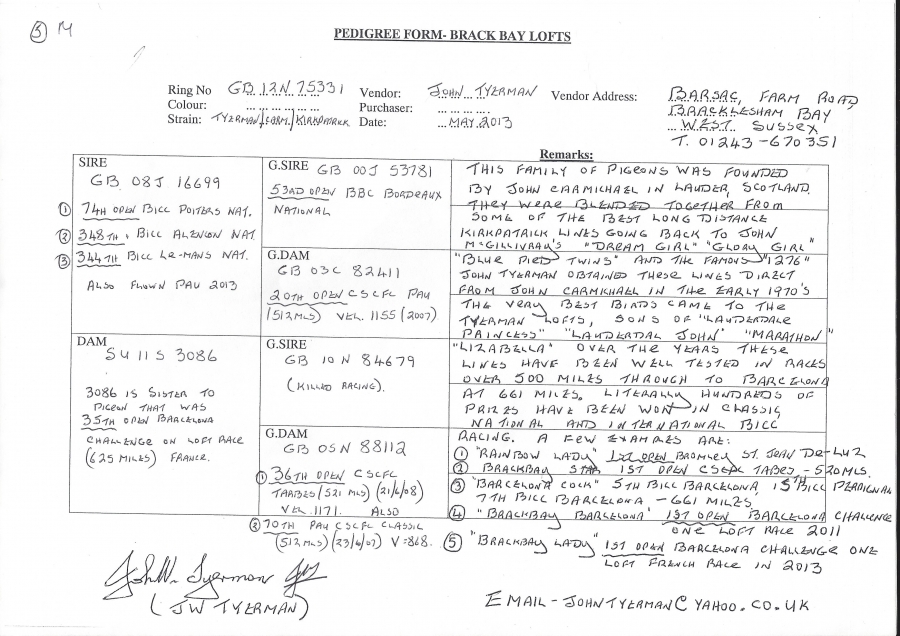 ③ M
PEDIGREE FORM- BRACK BAY LOFTS
Ring No GB 12N 75331
Colour: ... ... ... ... ... ...
Strain: TYERMAN/CARM./KIRKPATRICK
Vendor: JOHN TYERMAN
Purchaser: ... ... ... ... ...
Date: ...MAY 2013
Vendor Address: BARSAC, FARM ROAD
BRACKLESHAM BAY
WEST SUSSEX
T. 01243-670351
SIRE
GB 08J 16699
① 74TH OPEN BICC POITERS NAT.
② 348TH " BICC ALENCON NAT
③ 344TH BICC LE-MANS NAT.
ALSO FLOWN PAU 2013
DAM
SU 11 S 3086
3086 IS SISTER TO
PIGEON THAT WAS
35TH OPEN BARCELONA
CHALLENGE ON LOFT RACE
(625 MILES) FRANCE.
G.SIRE GB 00J 53781
53RD OPEN BBC BORDEAUX
NATIONAL
G.DAM
GB 03C 82411
20TH OPEN CSCFC PAU
(512 MLS) VEL. 1155 (2007)
G.SIRE
GB 10 N 84679
(KILLED RACING).
G.DAM
GB 05N 88112
① 36TH OPEN CSCFC
TARBES/(521 MLS) (21/6/08)
VEL. 1171. ALSO
② 70TH PAU CSCFC CLASSIC
(512 MLS) (23/6/07) V=868.
Remarks:
THIS FAMILY OF PIGEONS WAS FOUNDED
BY JOHN CARMICHAEL IN LAUDER, SCOTLAND.
THEY WERE BLENDED TOGETHER FROM
SOME OF THE BEST LONG DISTANCE
KIRKPATRICK LINES GOING BACK TO JOHN
McGILLIVRAY'S "DREAM GIRL" "GLORY GIRL"
"BLUE PIED TWINS" AND THE FAMOUS "1276"
JOHN TYERMAN OBTAINED THESE LINES DIRECT
FROM JOHN CARMICHAEL IN THE EARLY 1970'S
THE VERY BEST BIRDS CAME TO THE
TYERMAN LOFTS, SONS OF "LAUDERDALE
PRINCESS" "LAUDERDAL JOHN" "MARATHON"
"LIZABELLA" OVER THE YEARS THESE
LINES HAVE BEEN WELL TESTED IN RACES
OVER 500 MILES THROUGH TO BARCELONA
AT 661 MILES. LITERALLY HUNDREDS OF
PRIZES HAVE BEEN WON IN CLASSIC
NATIONAL AND INTERNATIONAL BICC
RACING. A FEW EXAMPLES ARE:
① "RAINBOW LADY" 1ST OPEN BROMLEY ST. JEAN DE-LUZ
② BRACKBAY STAR 1ST OPEN CSCFC TABES - 520 MLS.
③ "BARCELONA COCK" 5TH BICC BARCELONA, 15TH BICC PERPIGNAN
7TH BICC BARCELONA - 661 MILES.
④ "BRACKBAY BARCELONA" 1ST OPEN BARCELONA CHALLENGE
ONE LOFT RACE 2011
⑤ "BRACKBAY LADY" 1ST OPEN BARCELONA CHALLENGE ONE
LOFT FRENCH RACE IN 2013
John W. Tyerman
(JW TYERMAN)
EMAIL - JOHNTYERMAN@YAHOO.CO.UK